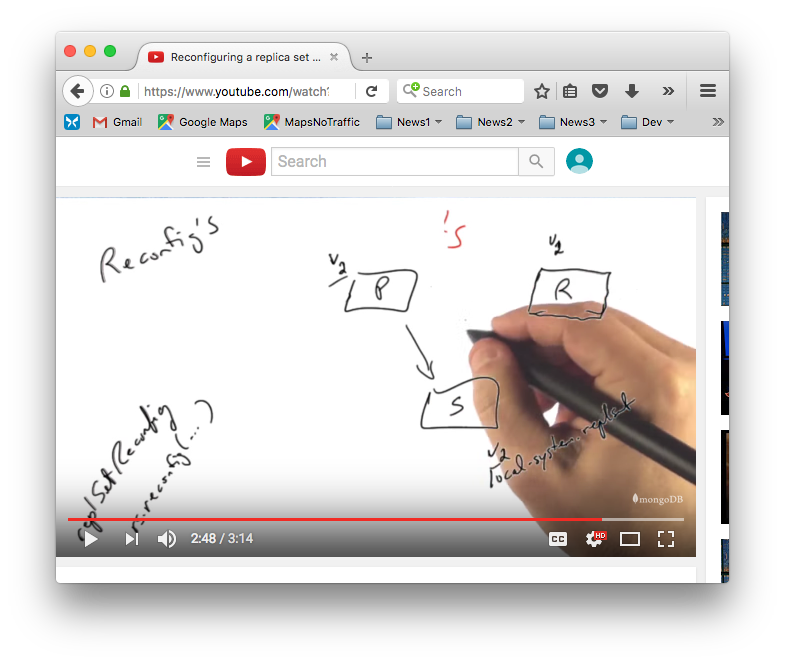 Reconfiguring a replica set ...
https://www.youtube.com/watch?
Search
Gmail
Google Maps
MapsNoTraffic
News1
News2
News3
Dev
Search
Reconfig's
's
v2
P
v2
R
S
v2
local.system.replset
replSetReconfig
rs.reconfig(...)
mongoDB
2:48 / 3:14
CC
HD